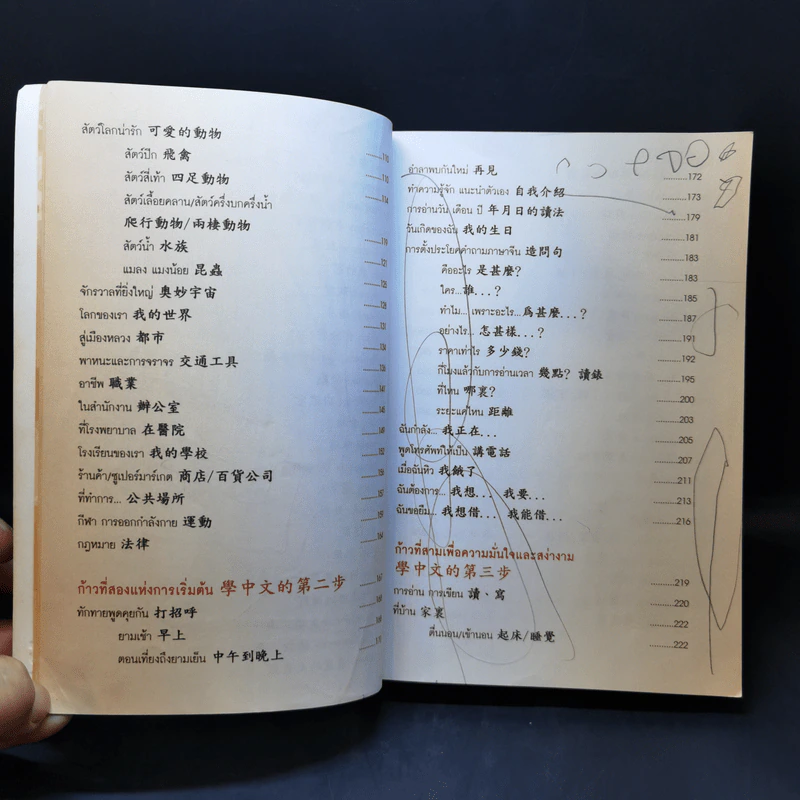 สัตว์โลกน่ารัก 可愛的動物
สัตว์ปีก 飛禽 ........110
สัตว์สี่เท้า 四足動物 ........113
สัตว์เลื้อยคลาน/สัตว์ครึ่งบกครึ่งน้ำ ........114
爬行動物/兩棲動物
สัตว์น้ำ 水族 ........119
แมลง แมงน้อย 昆蟲 ........121
จักรวาลที่ยิ่งใหญ่ 奧妙宇宙
โลกของเรา 我的世界
สู่เมืองหลวง 都市
พาหนะและการจราจร 交通工具
อาชีพ 職業
ในสำนักงาน 辦公室
ที่โรงพยาบาล 在醫院
โรงเรียนของเรา 我的學校
ร้านค้า/ซูเปอร์มาร์เกต 商店/百貨公司
ที่ทำการ... 公共場所
กีฬา การออกกำลังกาย 運動
กฎหมาย 法律 ........164
ก้าวที่สองแห่งการเริ่มต้น 學中文的第二步 ........167
ทักทายพูดคุยกัน 打招呼
ยามเช้า 早上
ตอนเที่ยงถึงยามเย็น 中午到晚上
อำลาพบกันใหม่ 再見 ........172
ทำความรู้จัก แนะนำตัวเอง 自我介紹 ........173
การอ่านวัน เดือน ปี 年月日的讀法 ........179
วันเกิดของฉัน 我的生日 ........181
การตั้งประโยคคำถามภาษาจีน 造問句 ........183
คืออะไร 是甚麼? ........183
ใคร... 誰...? ........185
ทำไม... เพราะอะไร... 爲甚麼...? ........187
อย่างไร... 怎甚樣...? ........191
ราคาเท่าไร 多少錢? ........192
กี่โมงแล้วกับการอ่านเวลา 幾點? 讀錶 ........195
ที่ไหน 哪裏? ........200
ระยะแค่ไหน 距離 ........203
ฉันกำลัง... 我正在... ........205
พูดโทรศัพท์ให้เป็น 講電話 ........207
เมื่อฉันหิว 我餓了 ........211
ฉันต้องการ... 我想... 我要... ........213
ฉันขอยืม... 我想借... 我能借... ........216
ก้าวที่สามเพื่อความมั่นใจและสง่างาม
學中文的第三步 ........219
การอ่าน การเขียน 讀、寫 ........220
ที่บ้าน 家裏 ........222
ตื่นนอน/เข้านอน 起床/睡覺 ........222